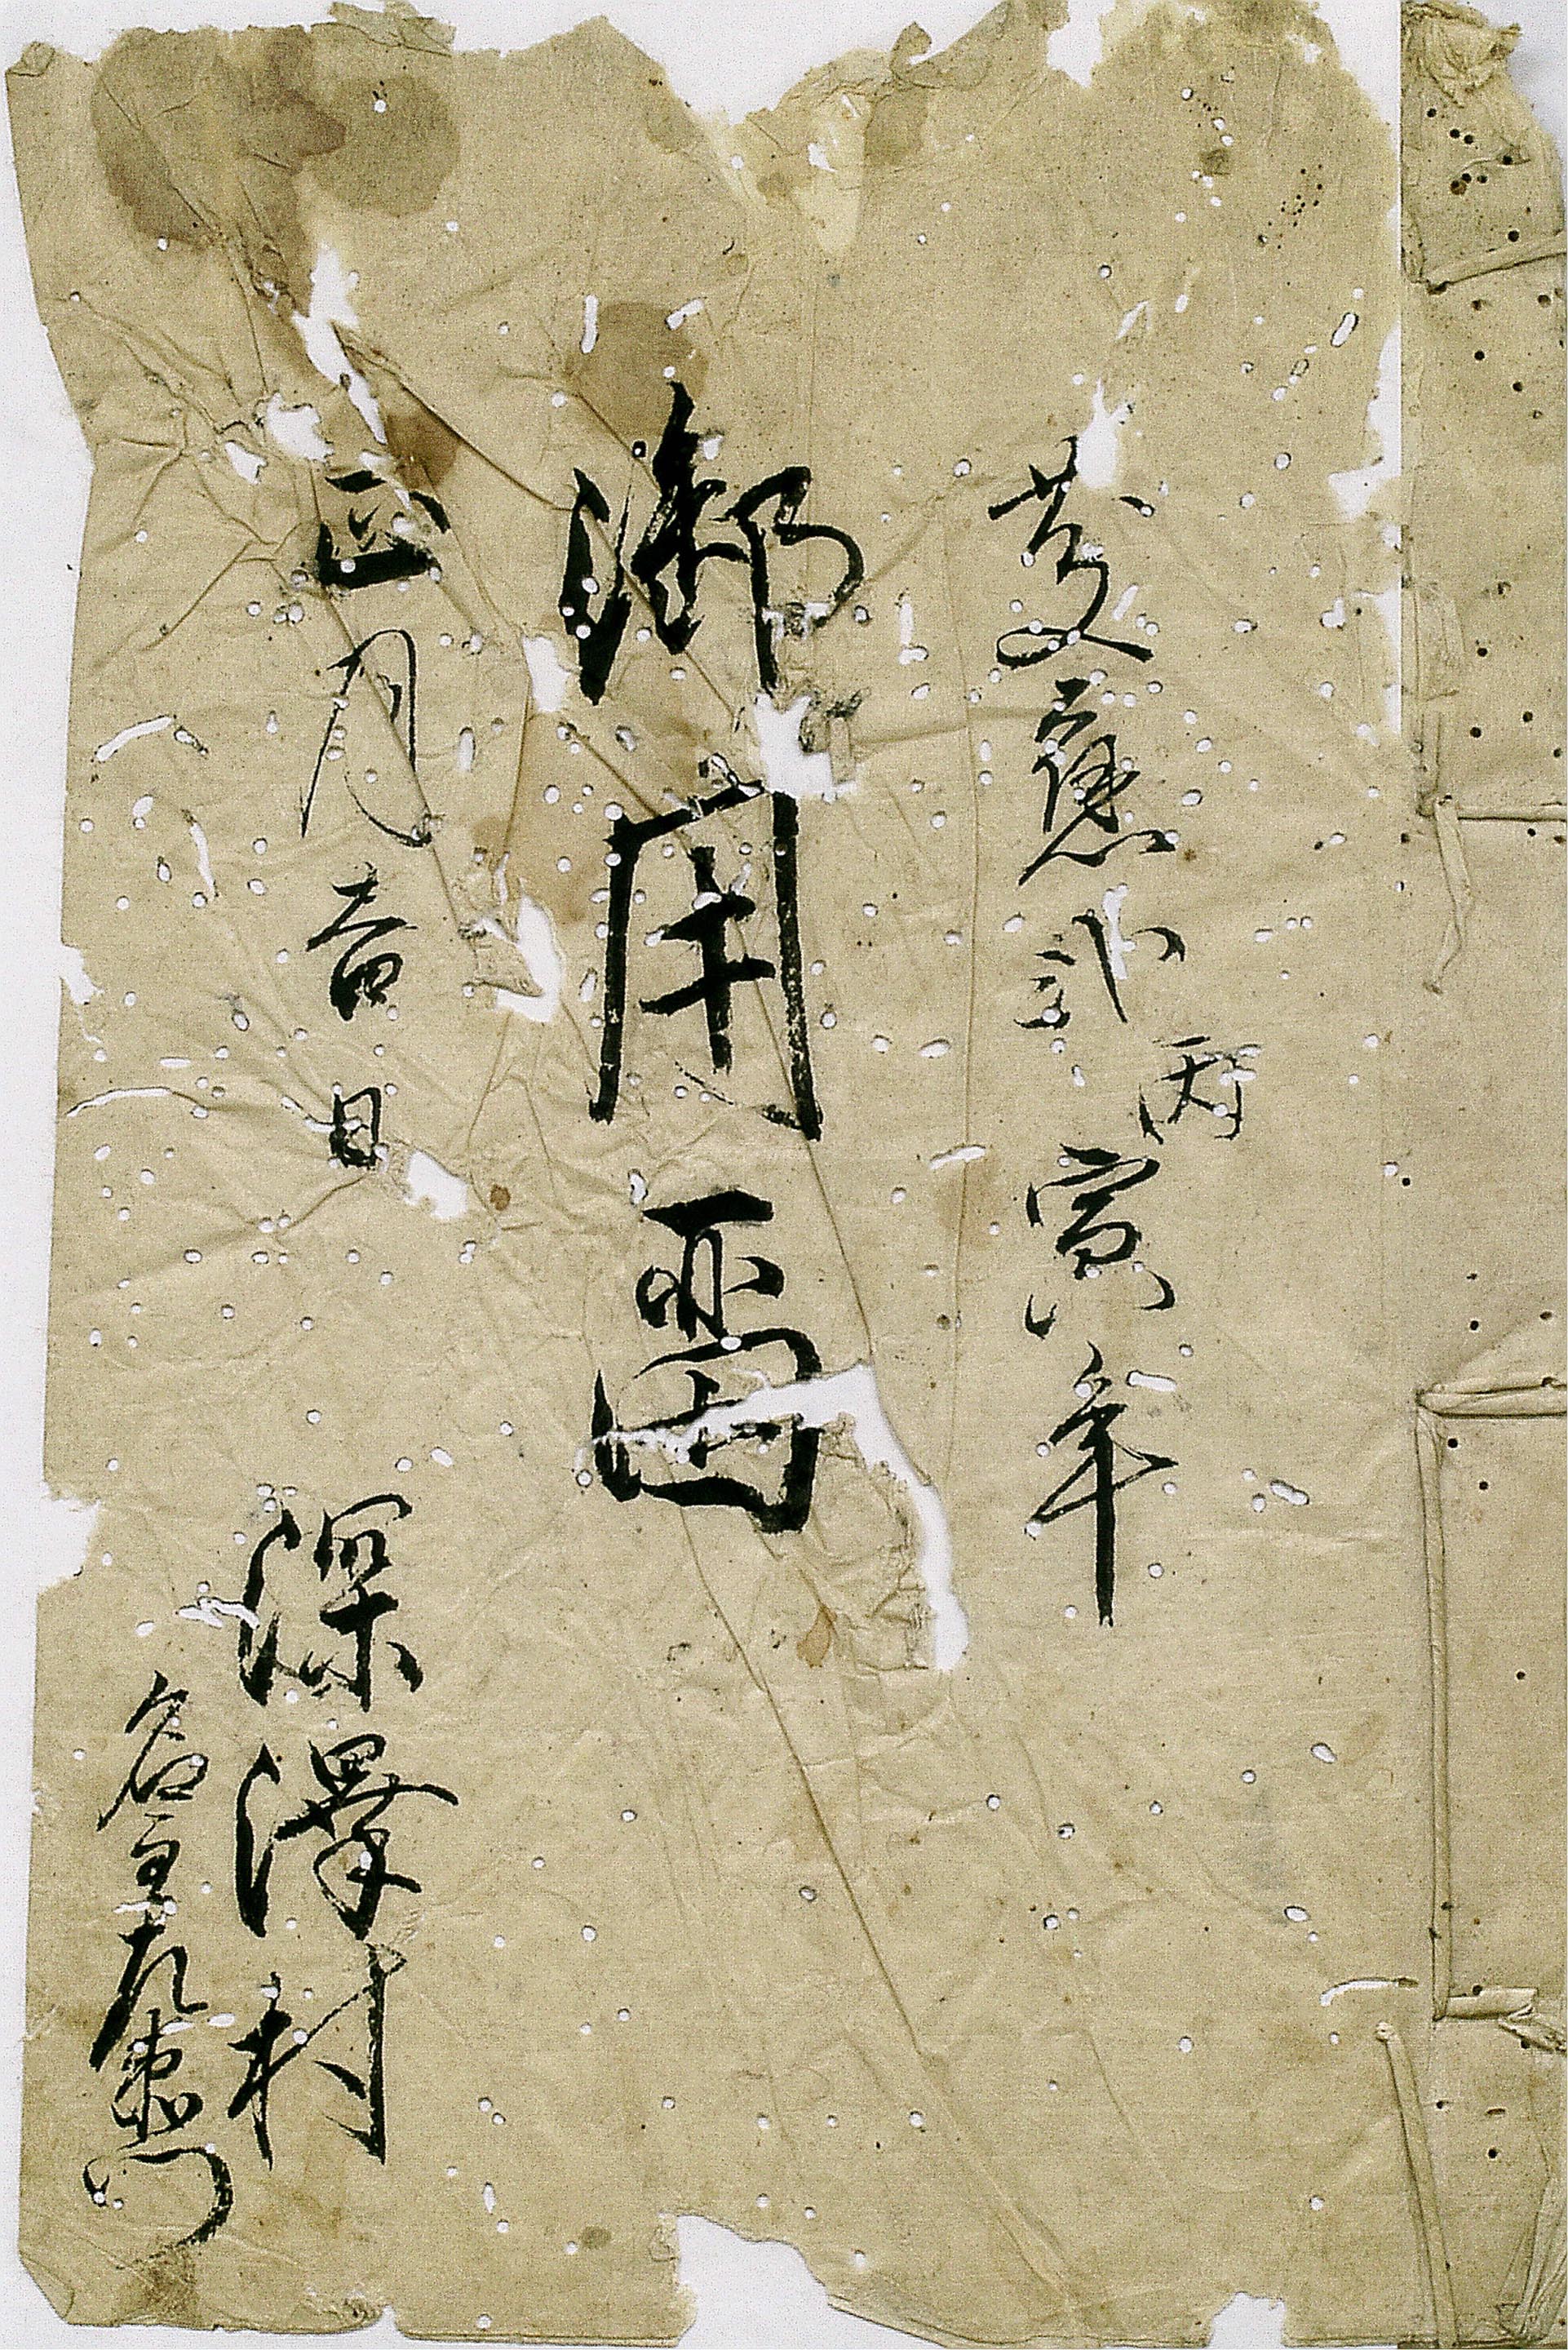 慶應弐丙寅年
御用畱
正月吉日
深澤村
名主 衛門